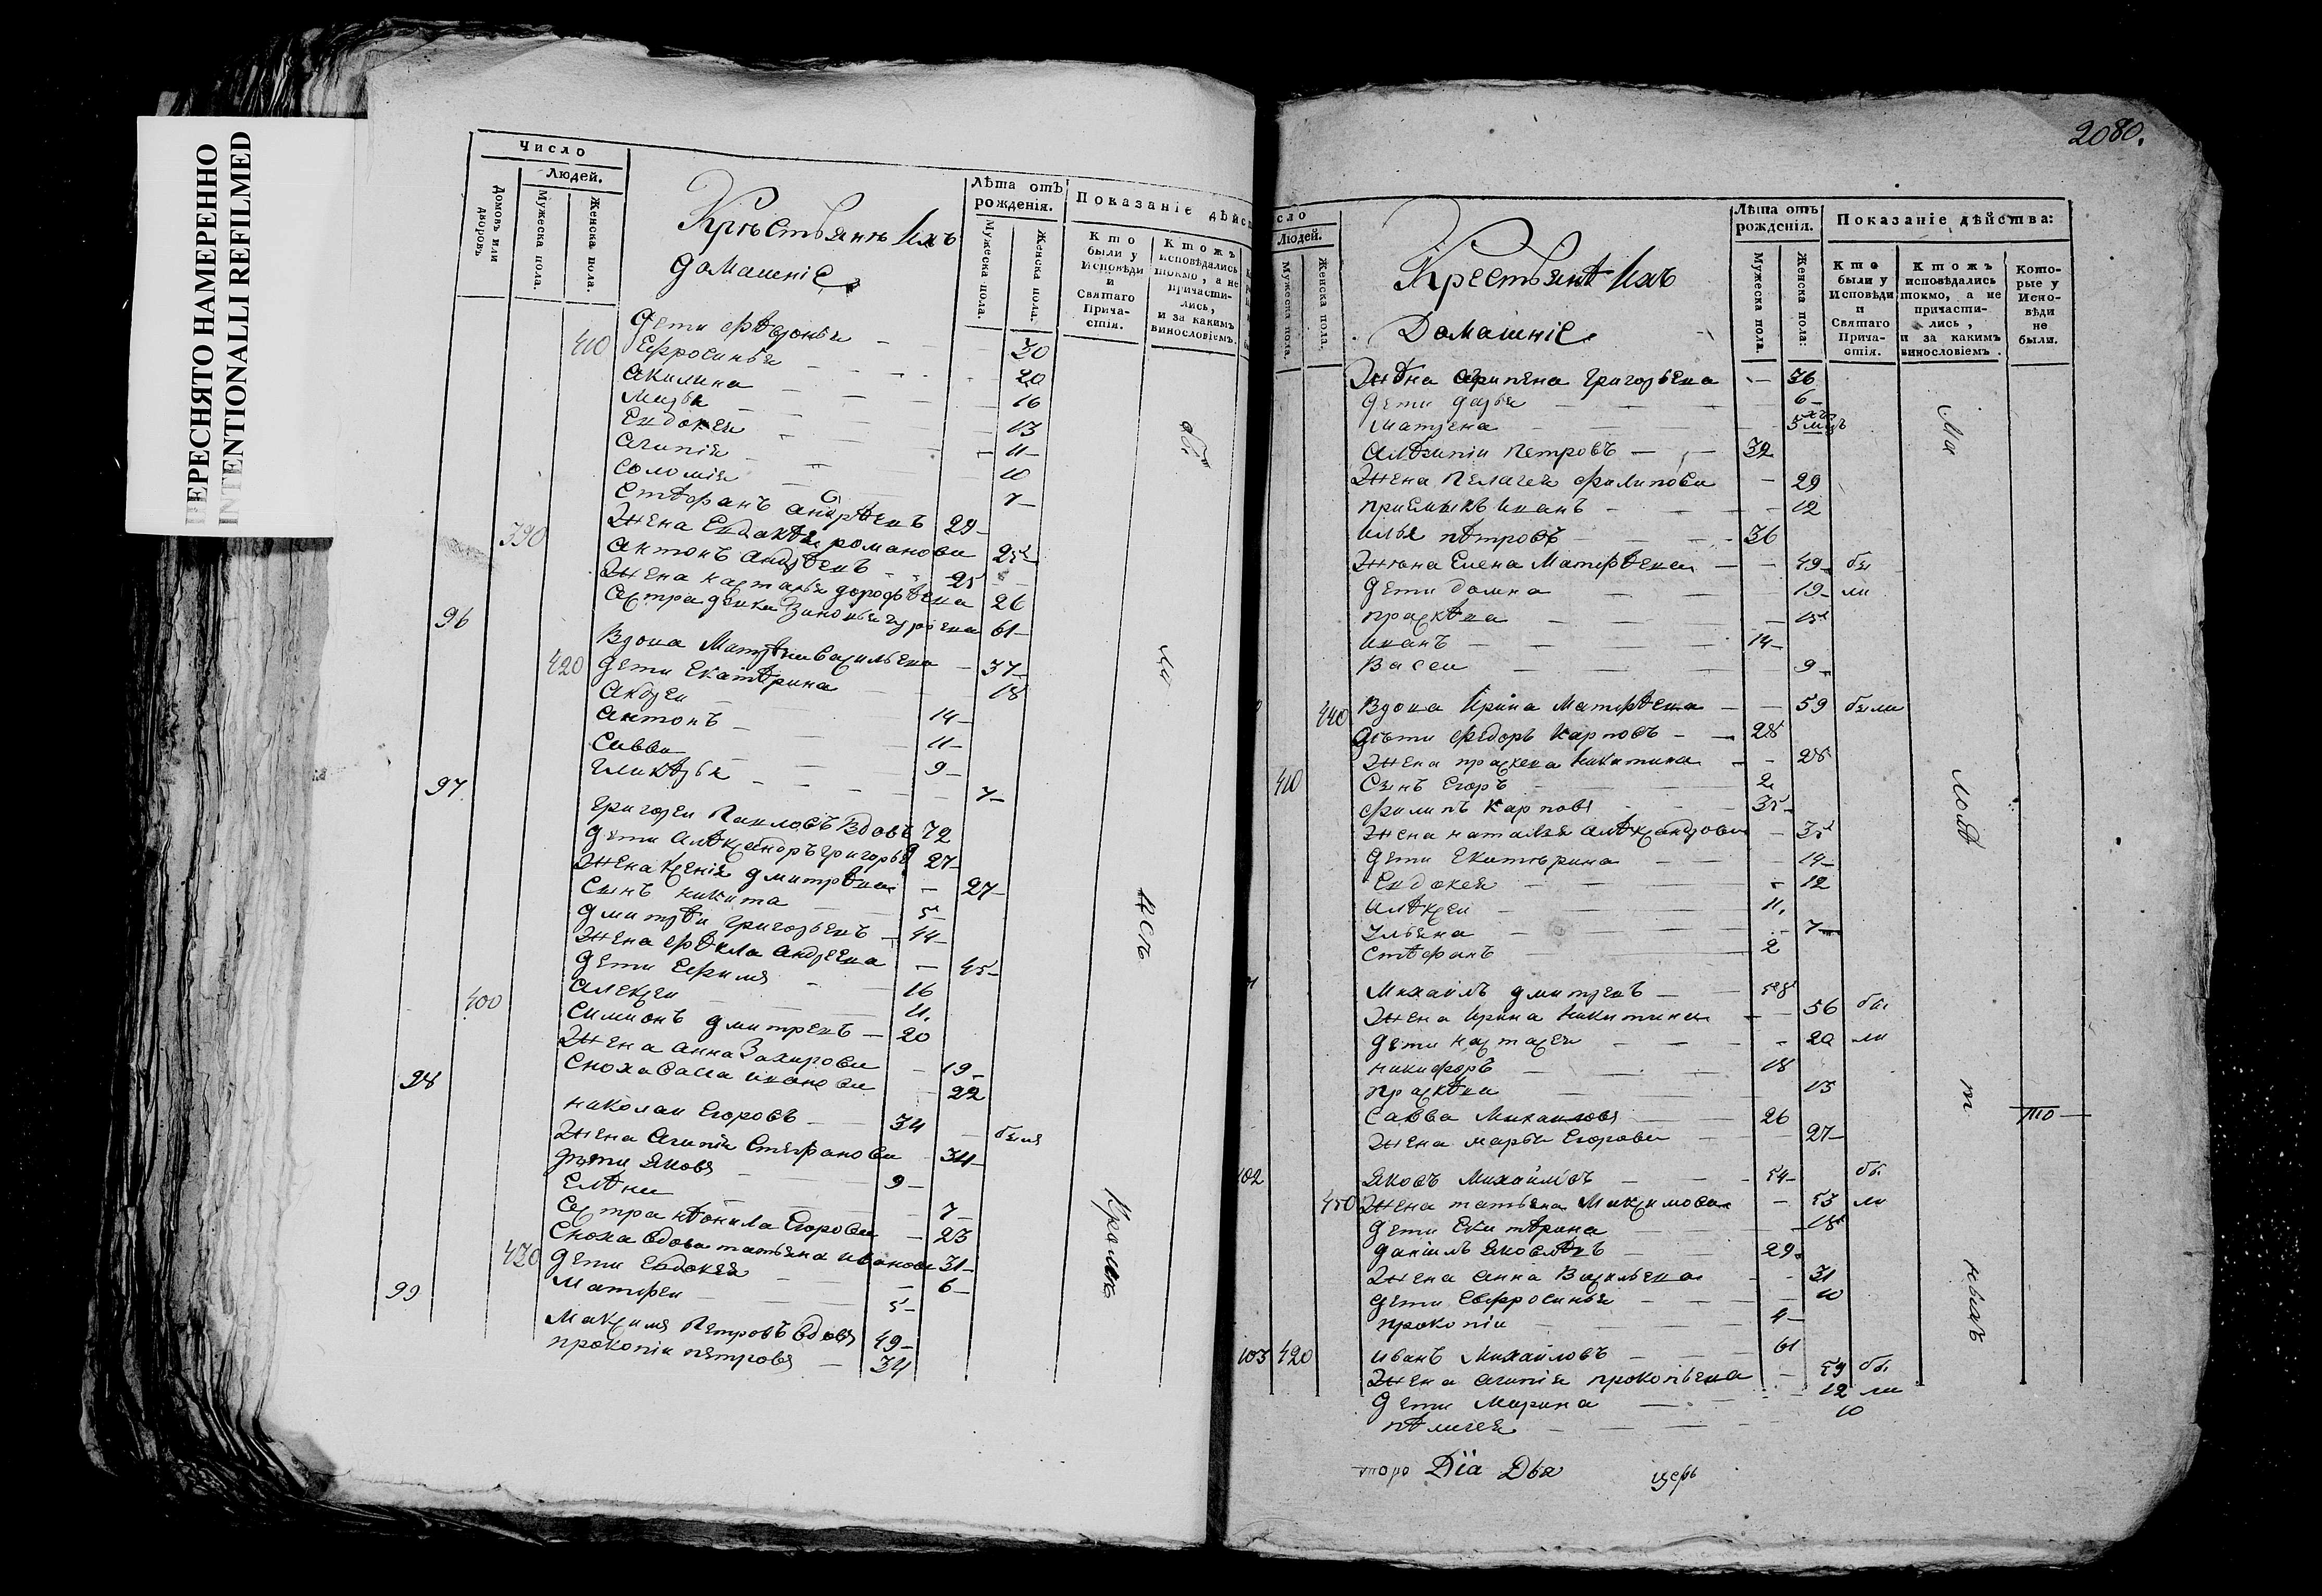 ПЕРЕСНЯТО НАМЕРЕННО
INTENTIONALLI REFILMED
Число
Людей.
Домовъ или дворовъ
Мужеска пола.
Женска пола.
Крестьянъ Ихъ
домашніе
Лѣта отъ рожденія.
Мужеска пола.
Женска пола.
Показаніе дѣйс
Кто были у Исповѣди и Святаго Прича-стія.
Ктожъ исповѣдались токмо, а не причасти-лись, и за какимъ винословіемъ.
дети 30
410 Ефросинья 20
акилина 16
Марья 13
Евдокея 11
агапія 10
соломія 7
Стефанъ андрѣевъ 29
390 Жена Евдокѣя романова 25
антонъ андрѣевъ 25
Жена настасья дорофѣева 26
сестра девка Зиновья 61
96 Вдова Матрена Васильева 37
420 дети Екатѣрина 18
андрей 14
антонъ 11
Савва 9
гликѣрья 7
97 григорей Павловъ Вдовъ 72
дети алѣксандръ григорье 27
Жена ксенія дмитрѣва 27
Сынъ никита 5
дмитрѣй григорьевъ 44
Жена фѣкла андреева 45
дети Ефимъ 16
400 алексей 11
Симионъ дмитревъ 20
Жена анна Захарова 19
Сноха васса иванова 22
98 николай Егоровъ 34 были
Жена агапія Стефанова 34
дѣти яковъ 9
Елѣна 7
Сестра нѣонила Егорова 23
Сноха вдова татьяна иванова 31
430 дети евдокея 6
Матфей 5
99 Максимъ Петровъ вдовъ 49
прокопій петровъ 34
2080.
сло
Людей.
Мужеска пола.
Женска пола.
Крестьянѣ Ихъ
Домашніе
Лѣта отъ рожденія.
Мужеска пола.
Женска пола:
Показаніе дѣйства:
Кто были у Исповѣди и Святаго Прича-стія.
Ктожъ исповѣдались токмо, а не причасти-лись, и за какимъ винословіемъ.
Кото-рые у Испо-вѣди не были.
Жѣна агрипена григорьева 36
дети дарья 6
матрена 5
алѣмпій петровъ 32
Жена пелагея филипова 29
приемышъ иванъ 12
илья пѣтровъ 36
Жена Елена Матфѣева 49 бы
дети домна 19 ли
праскѣва 15
иванъ 14
Васса 9
440 Вдова Ирина Матфѣева 59 были
дѣти фѣдоръ Карповъ 28
Жена праскева никитина 28
410 Сынъ Егоръ 2
филипъ карповъ 35
Жена наталья алѣксандрова 35
дети Екатѣрина 14
Евдокея 12
алѣксей 11
ульяна 7
стѣфанъ 2
Михайлъ дмитревъ 58
Жена Ирина никитина 56 бы
дети настасея 20 ли
никифоръ 18
праскѣва 15
савва Михаиловъ 26
Жена марья Егорова 27
102 яковъ Михайловъ 54 бы
450 Жена татьяна Максимова 53 ли
дети Екатѣрина 18
даніилъ яковлѣвъ 29
Жена анна Васильева 31
дети Евфросинья 10
прокопій 4
103 420 иванъ Михайловъ 61
Жена агапія прокопьева 59 бы
дети Марина 12 ли
пѣлагея 10
Діа Дья церь